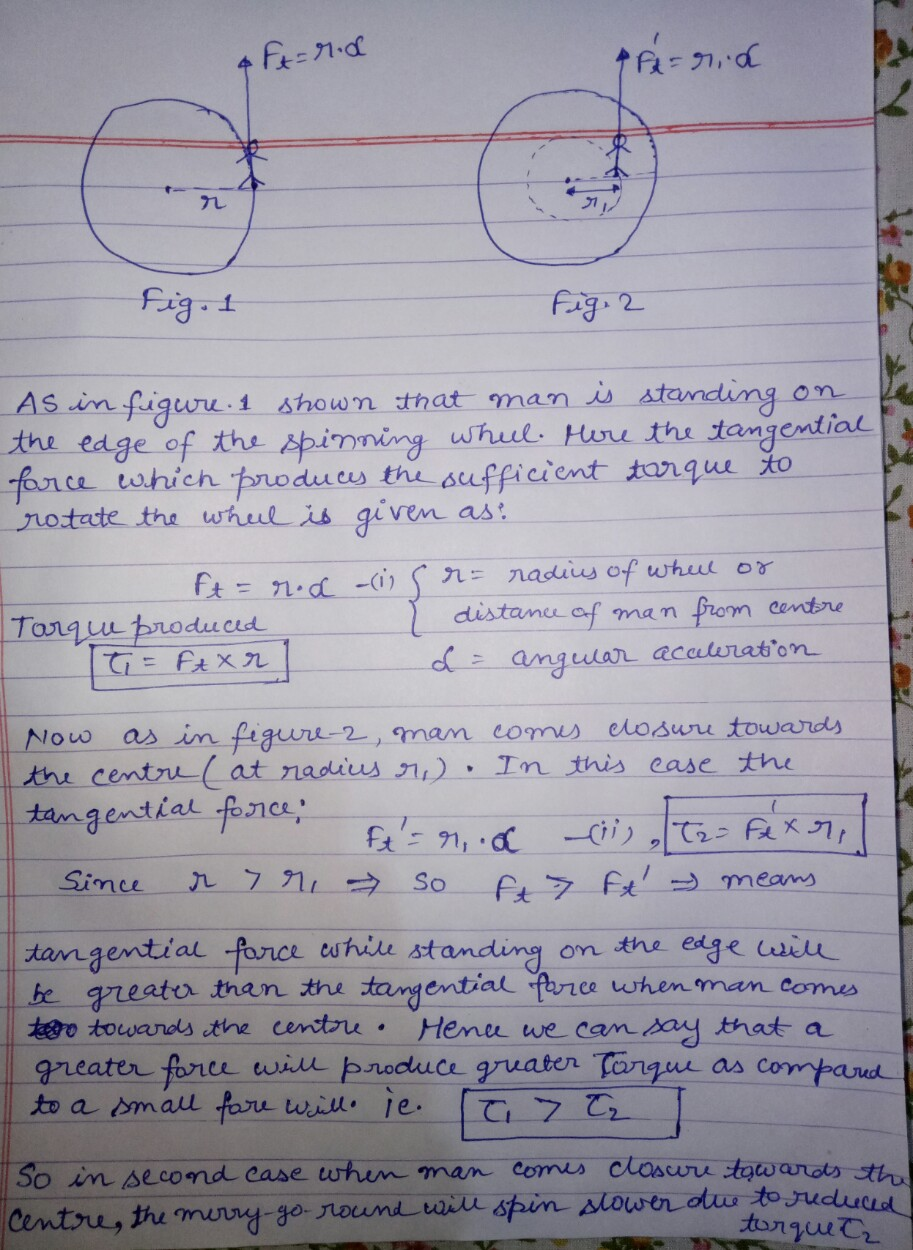 Ft = r.α
Ft' = r₁.α
r
r₁
Fig. 1
Fig. 2
AS in figure.1 shown that man is standing on
the edge of the spinning wheel. Here the tangential
force which produces the sufficient torque to
rotate the wheel is given as:
Ft = r.α -(i) { r = radius of wheel or
distance of man from centre
Torque produced
τ₁ = Ft × r
α = angular acceleration
Now as in figure-2, man comes closure towards
the centre (at radius r₁). In this case the
tangential force;
Ft' = r₁.α -(ii), τ₂ = Ft' × r₁
Since r > r₁ ⇒ So Ft > Ft' ⇒ means
tangential force while standing on the edge will
be greater than the tangential force when man comes
towards the centre. Hence we can say that a
greater force will produce greater Torque as compared
to a small fore will. ie. τ₁ > τ₂
So in second case when man comes closure towards the
centre, the merry-go-round will spin slower due to reduced
torque τ₂